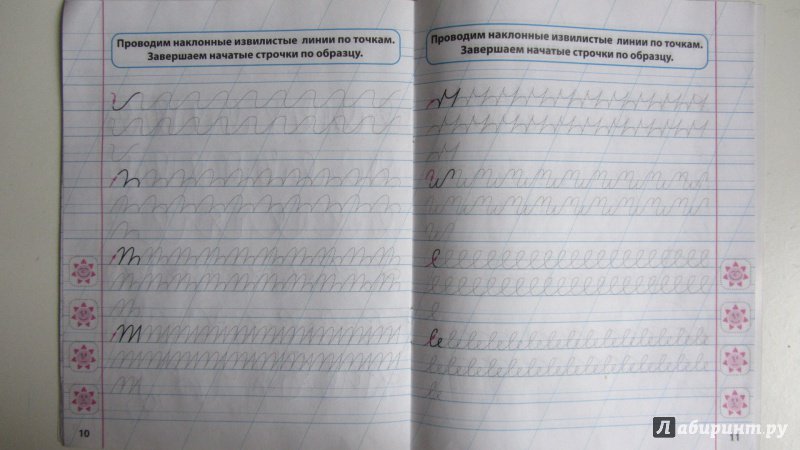 Проводим наклонные извилистые линии по точкам.
Завершаем начатые строчки по образцу.
10
Проводим наклонные извилистые линии по точкам.
Завершаем начатые строчки по образцу.
11
Лабиринт.ру